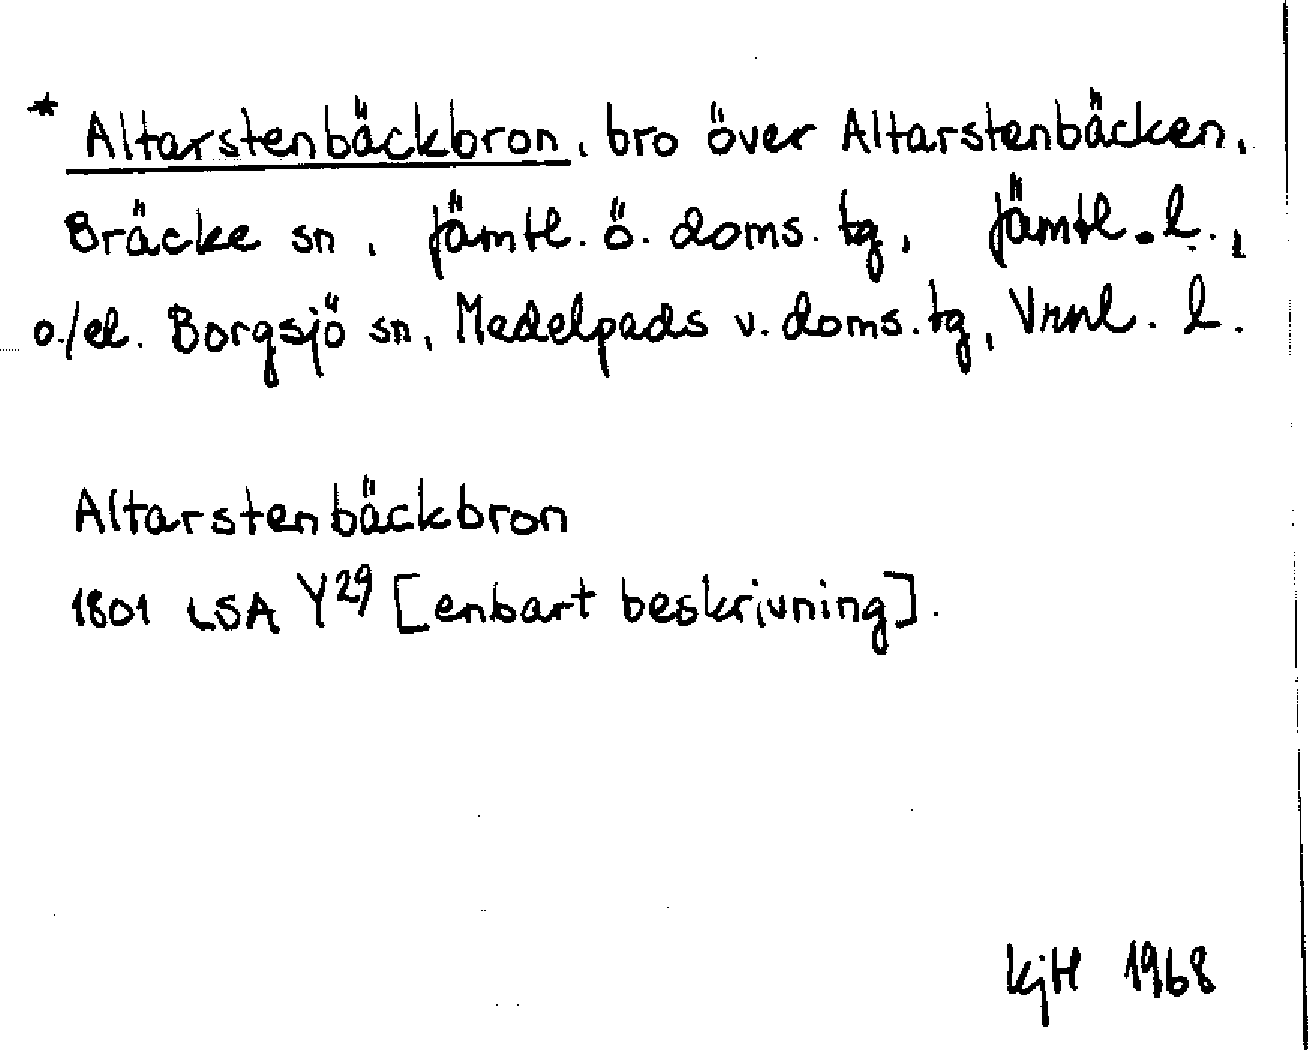 * Altarstenbäckbron, bro över Altarstenbäcken,
Bräcke sn, Jämtl. ö. doms. tg, Jämtl. l.,
o./el. Borgsjö sn, Medelpads v. doms. tg, Vrnl. l.
Altarstenbäckbron
1801 LSA Y29 [enbart beskrivning].
KjH 1968